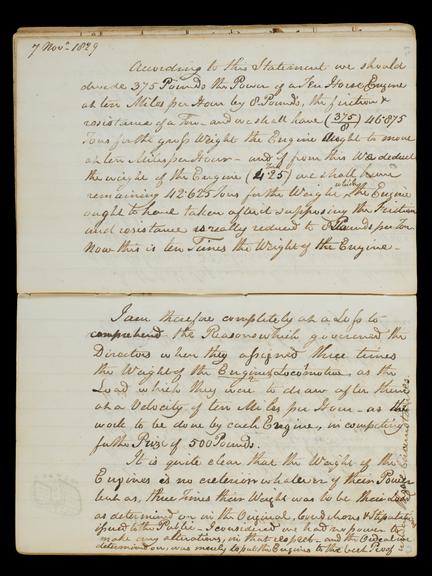 7 Novr 1829
According to this Statement we should
divide 375 Pounds the Power of a Ten Horse Engine
at ten Miles per Hour by 8 Pounds, the friction &
resistance of a Ton - and we shall have (375/8) 46.875
Tons for the gross Weight the Engine Aught to move
at ten Miles per Hour - and if from this We deduct
the weight of the Engine (4.25 Tons) we shall have
remaining 42.625 Tons for the Weight which the Engine
ought to have taken after it supposing the Friction
and resistance is really reduced to 8 Pounds per ton
Now this is ten Times the Weight of the Engine -
I am therefore completely at a Loss to
comprehend the Reasons which governed the
Directors when they assigned three times
the Weight of the Engines Locomotive, as the
Load which they were to draw after them
at a Velocity of ten Miles per Hour - as the
work to be done by each Engine, in competing
for the Prize of 500 Pounds.
It is quite clear that the Weight of the
Engines is no criterion whatever of their Power
but as, three Times their Weight was to be their load
as determined on in the Original, Conditions & Stipulations
issued to the Public - I considered we had no power to
make any alterations, in that respect - and the
determined on, was merely to put the Engines to the best Proof